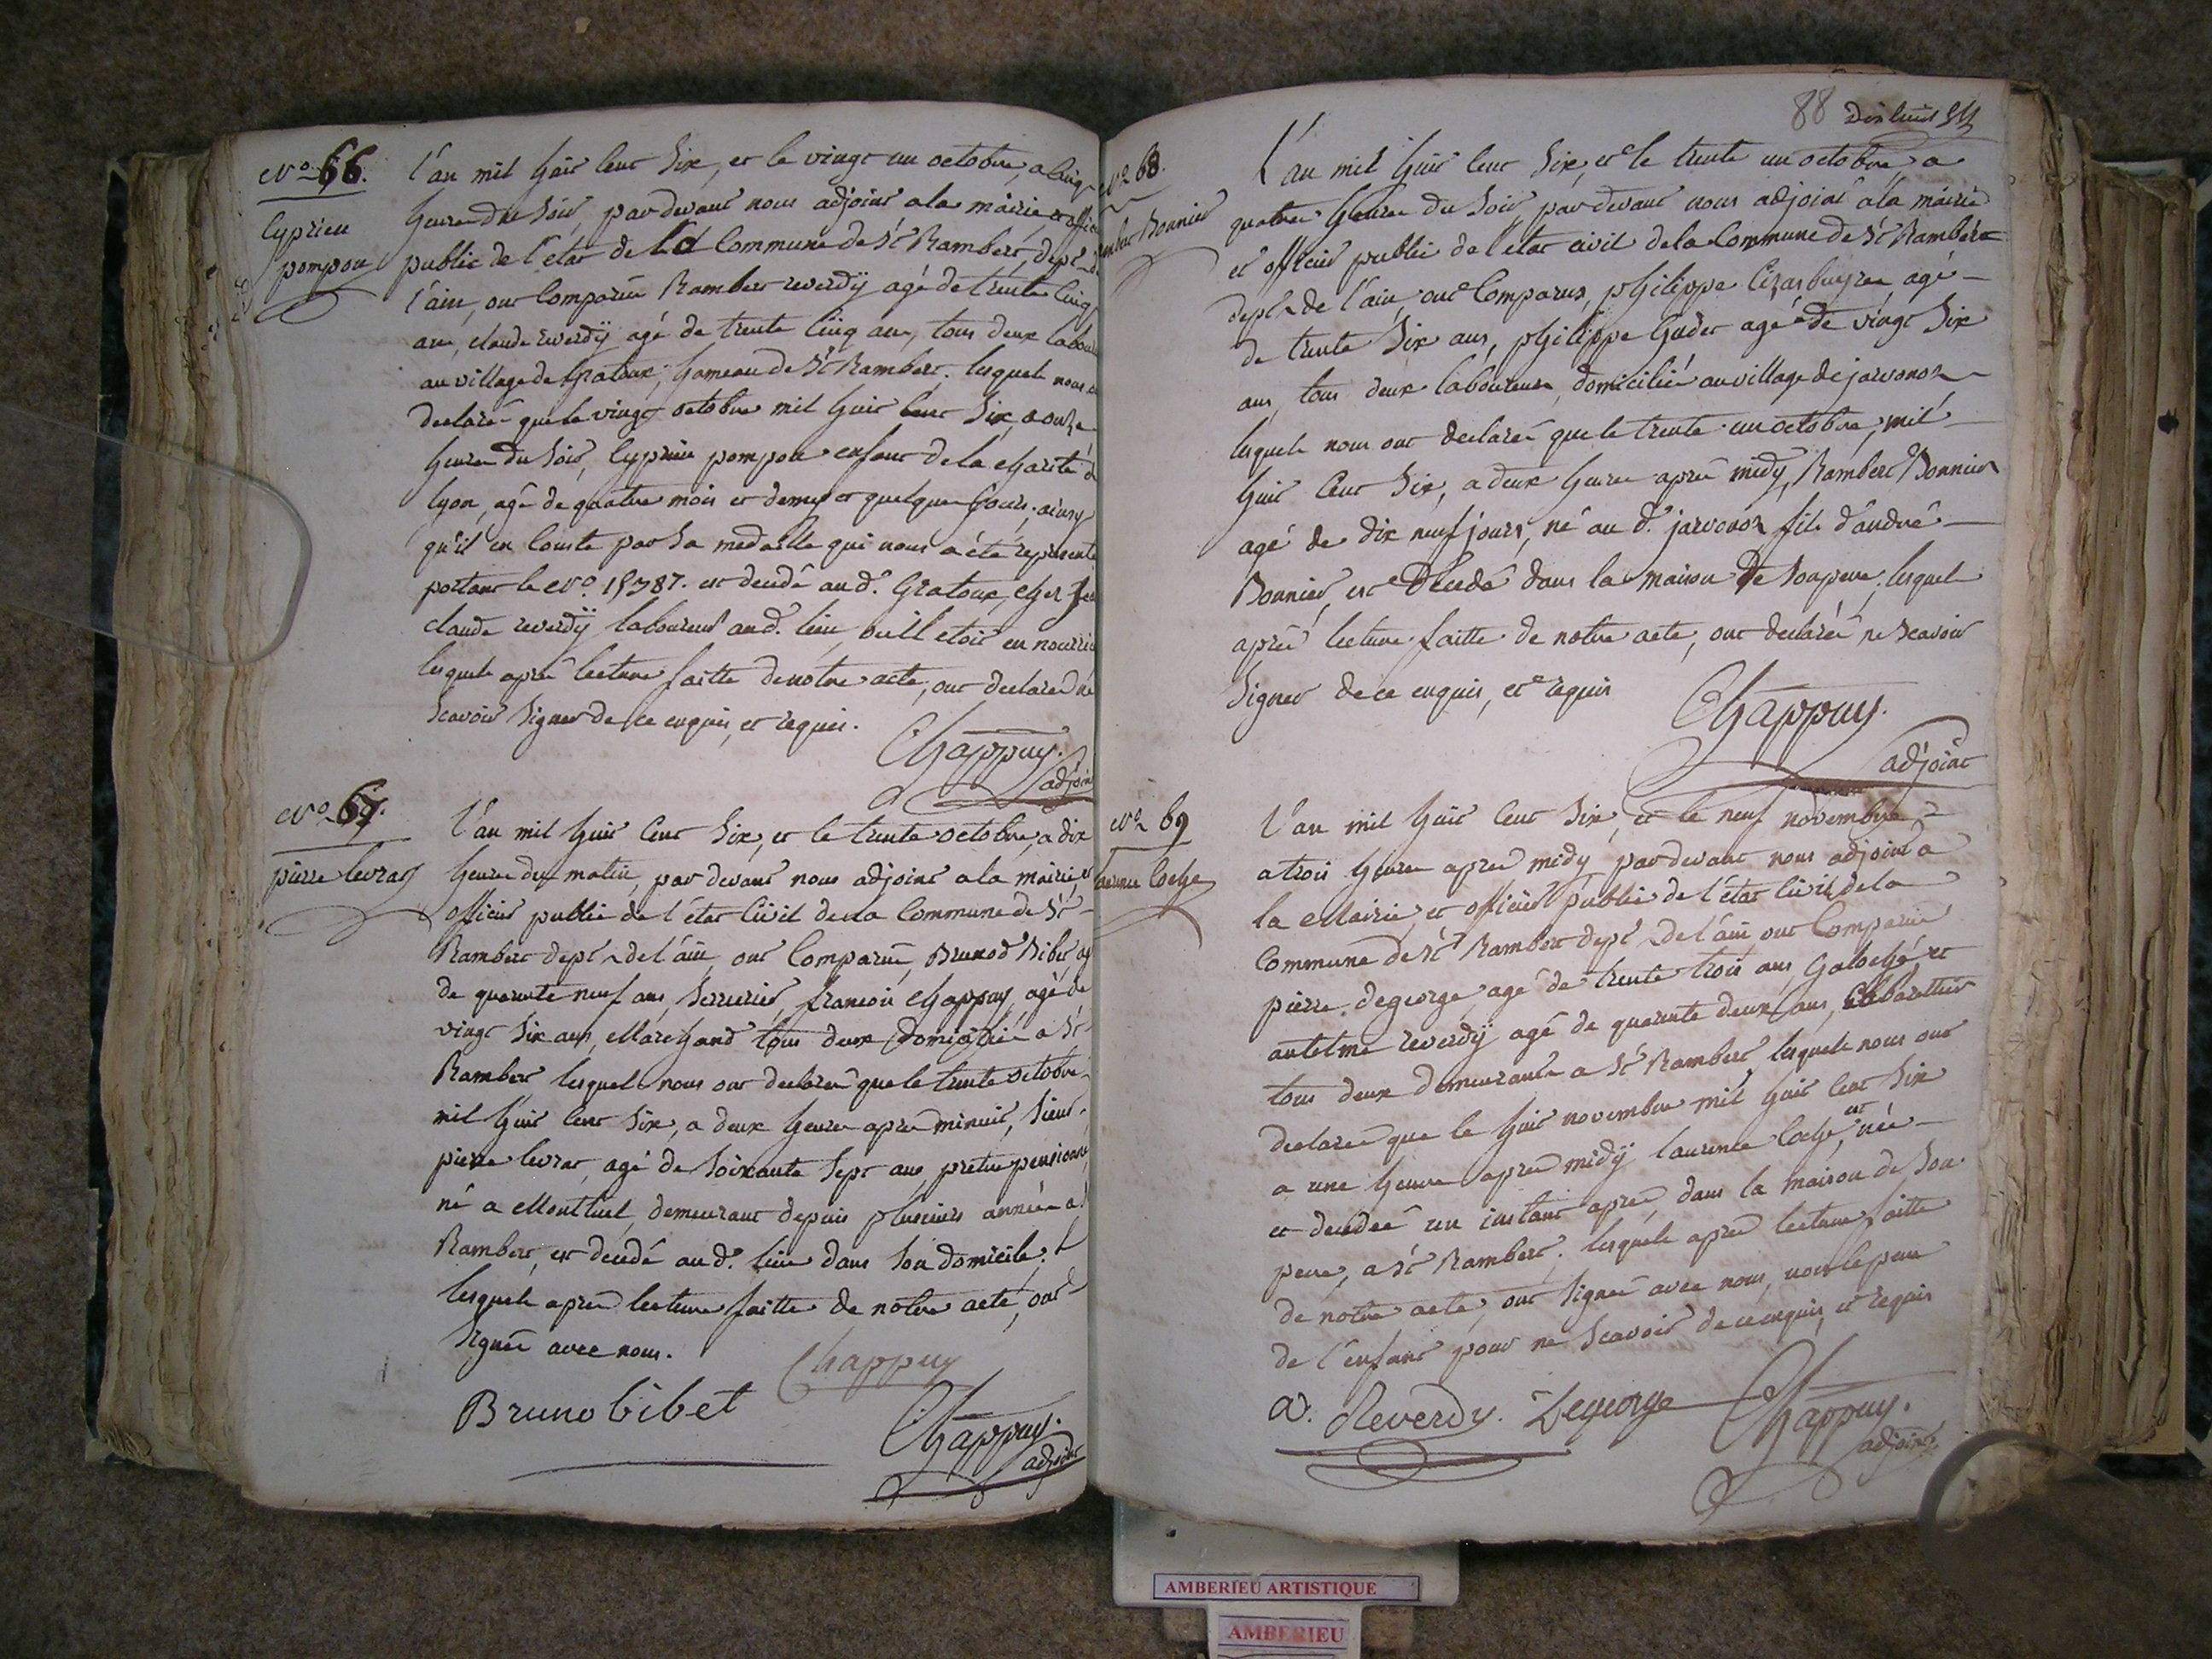 No. 66.
Cyprien
pompon
L'an mil huit cent six, et le vingt un octobre, a cinq
heures du soir, par devant nous adjoint a la mairie et offic
public de l'etat de la Commune de St Rambert, dept de
l'ain, ont comparus Rambert reverdÿ agé de trente cinq
ans, claude reverdÿ agé de trente cinq ans, tous deux labou
au village de Gratoux, hameau de St Rambert. lesquels nous
declaré que le vingt octobre mil huit cent six, a onze
heures du soir, Cyprien pompon enfant de la charité d
lyon, agé de quatre mois et demy et quelques jours, ainsy
qu'il en conste par sa medaille qui nous a été representé
portant le No. 15387. est decedé au d. Gratoux, chez
claude reverdÿ laboureur au d. lieu, ou il etoit en nourri
lesquels après lecture faitte de notre acte, ont declarés ne
scavoir signer de ce enquis, et requis.
Chappuy.
adjoin
No. 67.
pierre levrat
L'an mil huit cent six, et le trente octobre, a dix
heures du matin, par devant nous adjoint a la mairie, et
officier public de l'état civil de la Commune de St
Rambert dept de l'ain, ont comparus, Brunod Bibet, ag
de quarante neuf ans, serrurier, francois chappuy, agé de
vingt six ans, Marchand tous deux domicilié a St
Rambert, lesquels nous ont declarés que le trente octobre
mil huit cent six, a deux heures apres minuit, sieur
pierre levrat, agé de soixante sept ans, pretre pensionné,
né a Montluel, demeurant depuis plusieurs années a
Rambert, est decedé au d. lieu dans son domicile.
lesquels après lecture faitte de notre acte, ont
signés avec nous.
Chappuy
Bruno bibet
Chappuy.
adjoint
88 dix huit
No. 68.
Rambert Bonnier
L'an mil huit cent six, et le trente un octobre, a
quatres heures du soir, par devant nous adjoint a la mairie
et officier public de l'état civil de la Commune de St Rambert
dept de l'ain, ont comparus, philippe agé
de trente six ans, philippe Gudet agé de vingt six
ans, tous deux laboureurs, domiciliés au village de javornoz
lesquels nous ont declarés que le trente un octobre, mil
huit cent six, a deux heures après midy, Rambert Bonnier
agé de dix neuf jours, né au d. javornoz fils d'andré
Bonnier, est Decedé dans la maison de son pere. lesquels
après lecture faitte de notre acte, ont declarés ne scavoir
signer de ce enquis, et requis
Chappuy.
adjoint
No. 69
laurence Coche
L'an mil huit cent six, et le neuf novembre,
a trois heures apres midy par devant nous adjoint a
la Mairie, et officier public de l'état civil de la
Commune de St Rambert dept de l'ain ont comparus
pierre degeorge, agé de trente trois ans, galoché et
antelme reverdÿ agé de quarante deux ans, Cabarettier
tous deux demeurants a St Rambert, lesquels nous ont
declarés que le huit novembre mil huit cent six
a une heure apres midÿ laurence Coche, est née
et decedée un instant après, dans la maison de son
pere, a St Rambert. lesquels après lecture faitte
de notre acte, ont signés avec nous, non le pere
de l'enfant pour ne scavoir de ce enquis, et requis
a. Reverdy. Degeorge Chappuy.
adjoint
AMBERIEU ARTISTIQUE
AMBERIEU